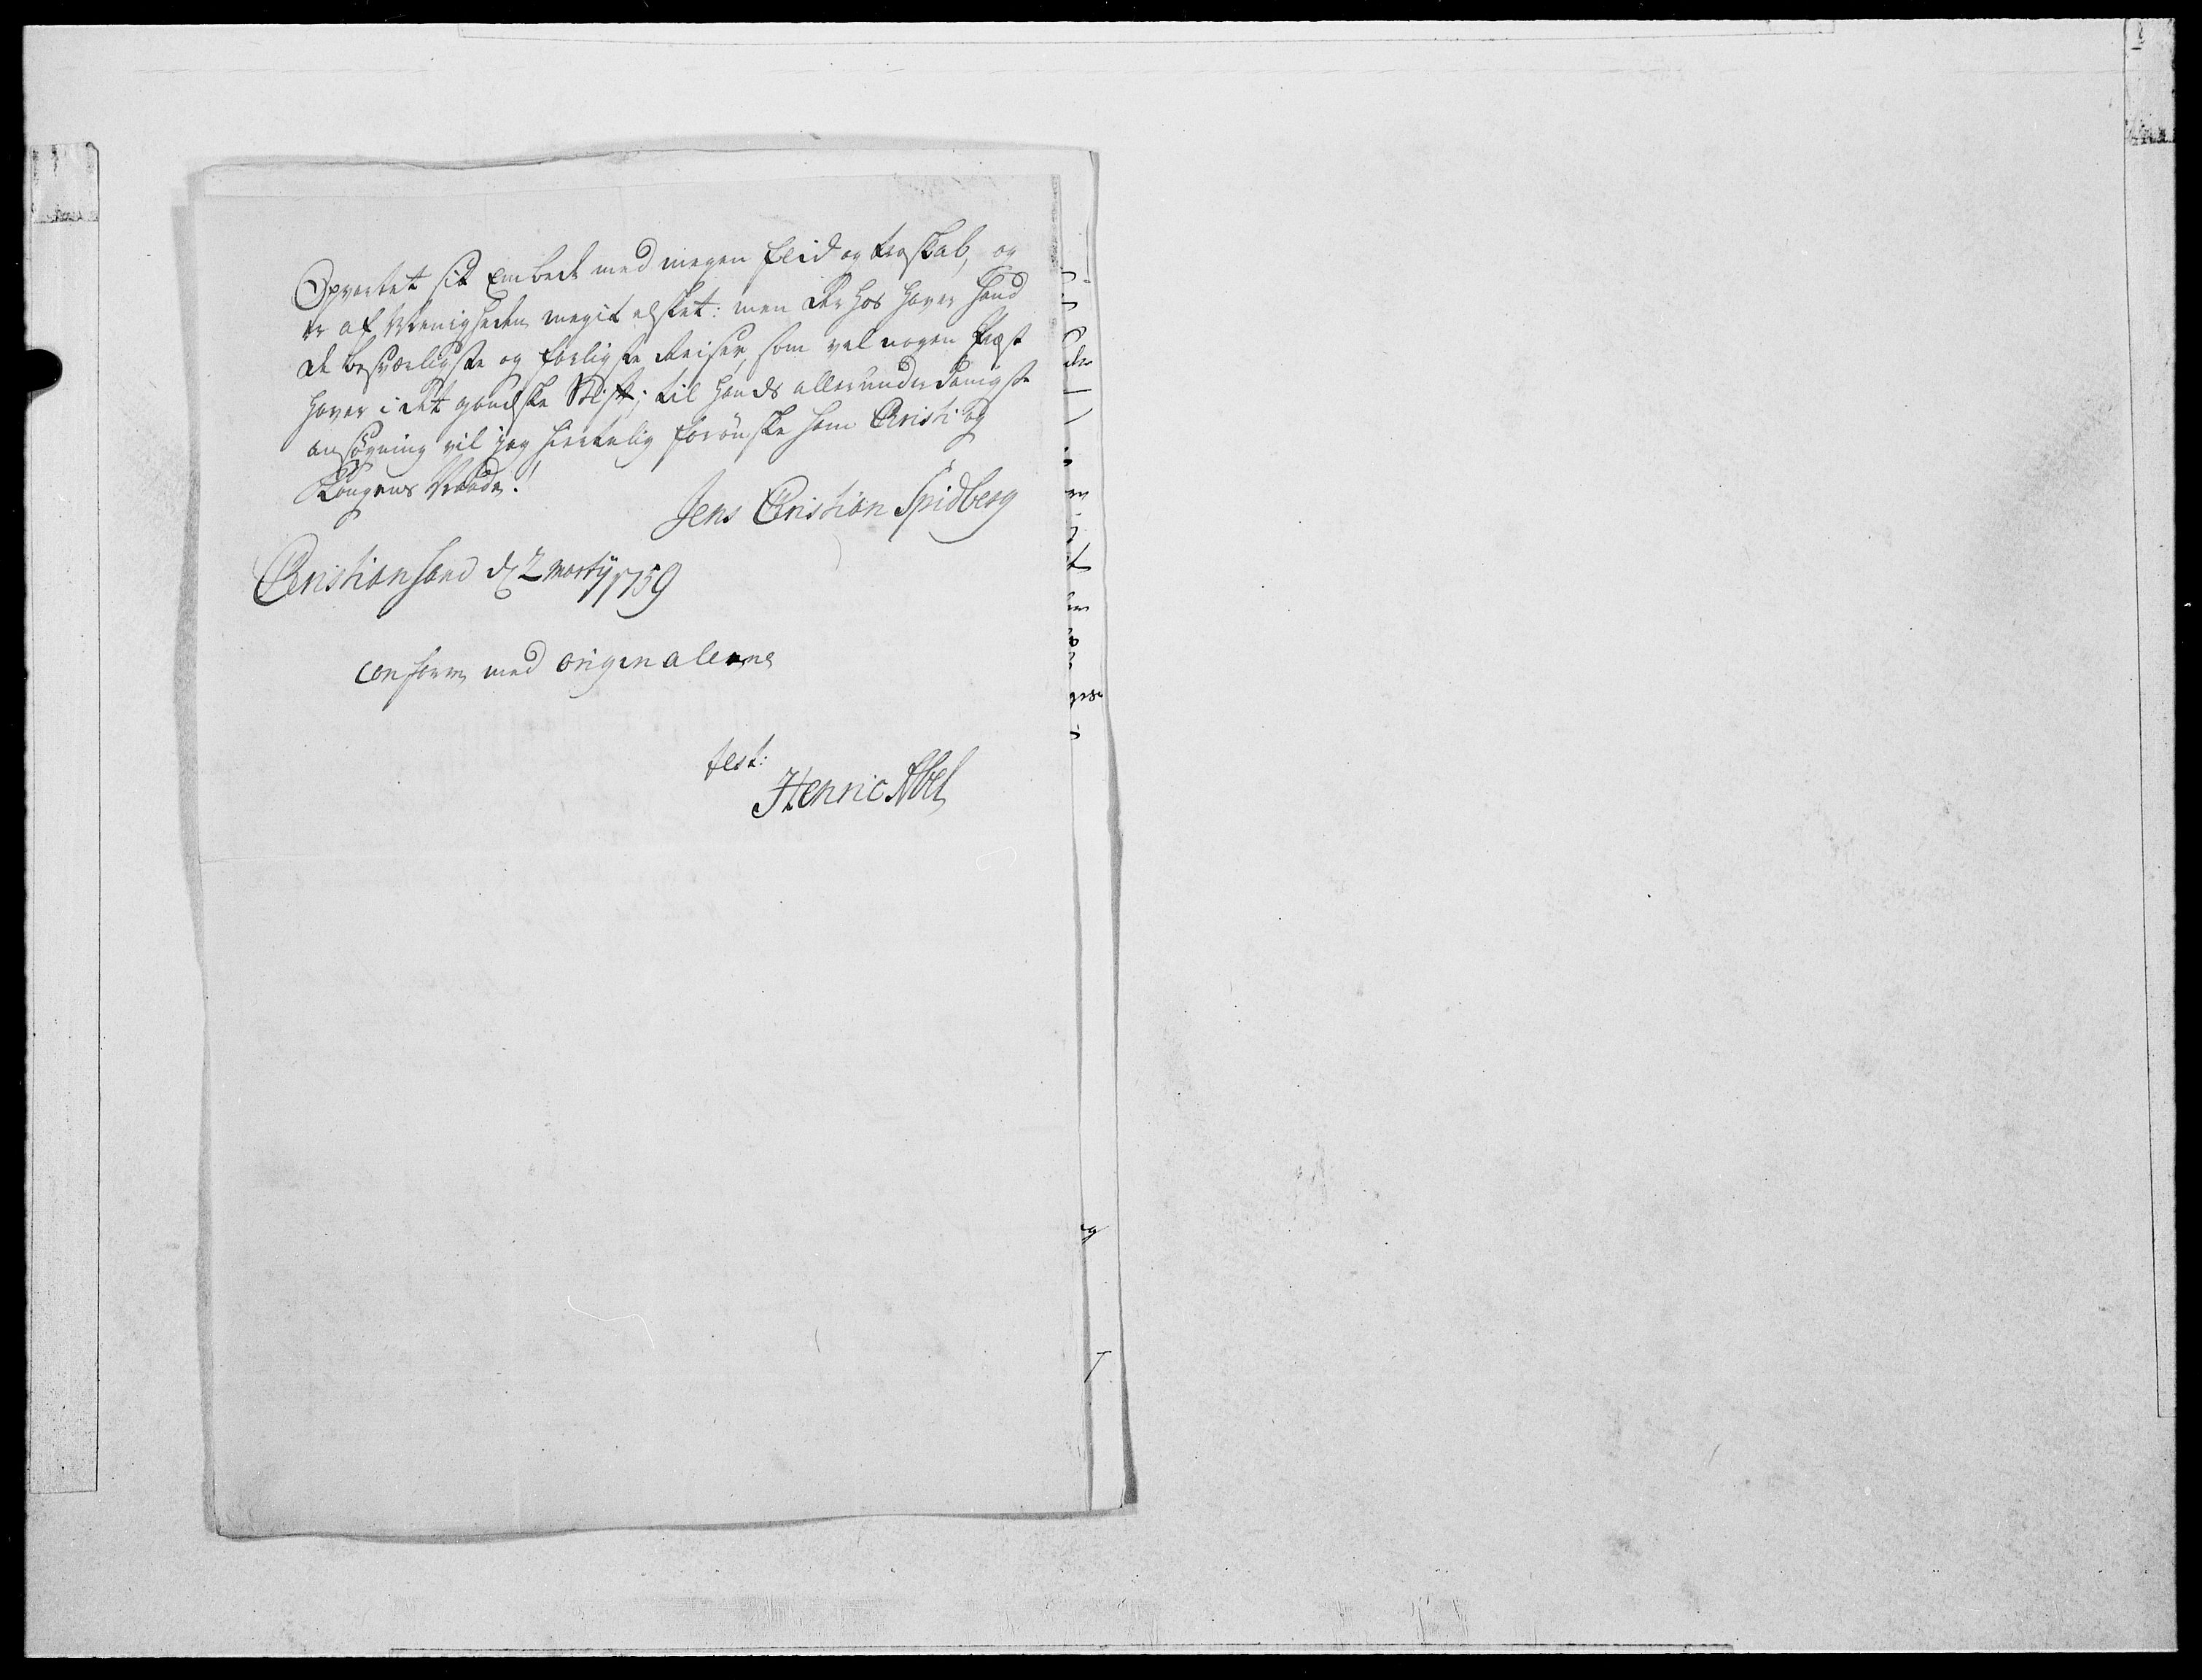 Opvartet sit Embede med megen fliid og troskab, og
er af Menigheden megit elsket: men derhos haver hand
de besværligste og farligste Reiser, som vel nogen Præst
haver i det gandske Stift; til hands allerunderdanigste
ansøgning vil jeg hiertelig forønske ham Christi og
Kongens Naade!
Jens Christian Spidberg
Christiansand d 2 Martij 1759
conform med originalerne
test:
Henric Abel